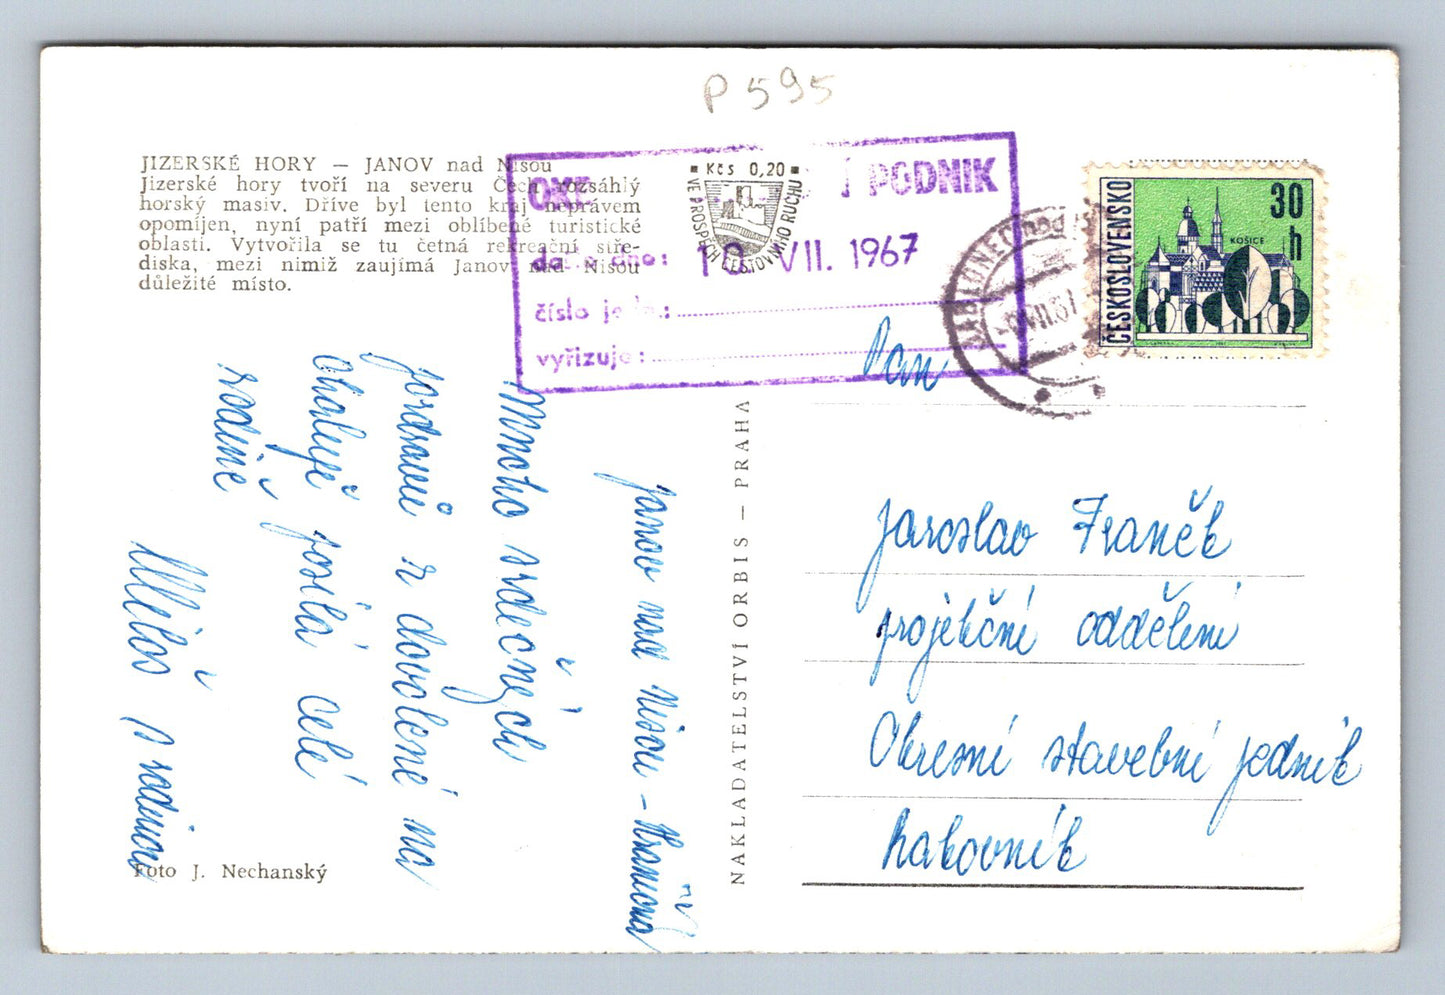 P 595
JIZERSKÉ HORY — JANOV nad Nisou
Jizerské hory tvoří na severu Čech rozsáhlý
horský masiv. Dříve byl tento kraj neprávem
opomíjen, nyní patří mezi oblíbené turistické
oblasti. Vytvořila se tu četná rekreační stře-
diska, mezi nimiž zaujímá Janov nad Nisou
důležité místo.
Í PODNIK
došlo dne: VII. 1967
číslo jedn.:
vyřizuje:
Kčs 0,20
VE PROSPĚCH CESTOVNÍHO RUCHU
JABLONEC nad
VII.67
ČESKOSLOVENSKO
30
h
KOŠICE
Janov nad Nisou - Hraničná
Mnoho srdečných
pozdravů z dovolené na
chalupě posílá celé
rodině
Miloš s rodinou
Foto J. Nechanský
NAKLADATELSTVÍ ORBIS — PRAHA
Pan
Jaroslav Franěk
projekční oddělení
Okresní stavební podnik
Rakovník